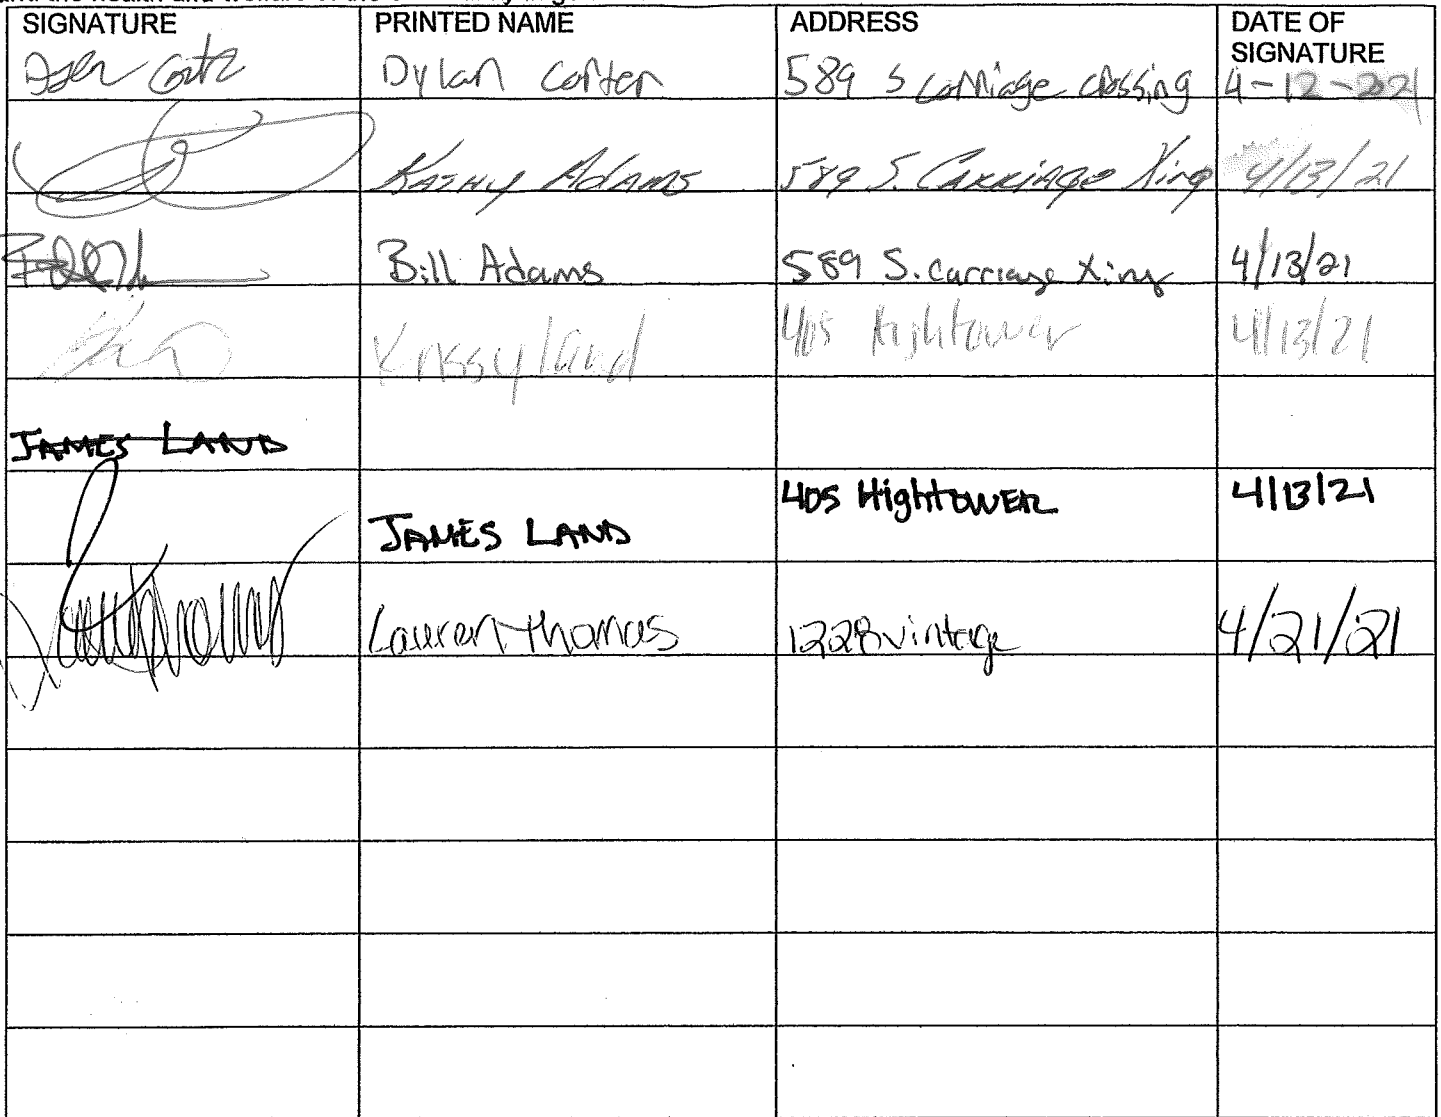 SIGNATURE PRINTED NAME ADDRESS DATE OF SIGNATURE
Dylan Carter 589 S Carriage crossing 4-12-2021
KATHY ADAMS 589 S. CARRIAGE Xing 4/13/21
Bill Adams 589 S. Carriage Xing 4/13/21
Krissy Land 405 Hightower 4/13/21
JAMES LAND
JAMES LAND 405 HightOWER 4/13/21
Lauren Thomas 1228 vintage 4/21/21